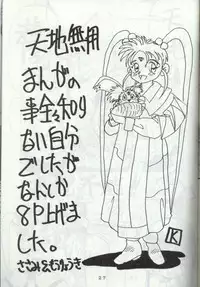 天地無用
まんがの
事全々知り
ない自分
でしたが
なんとか
8P上げま
した。
ささみ&りょうき
K
27